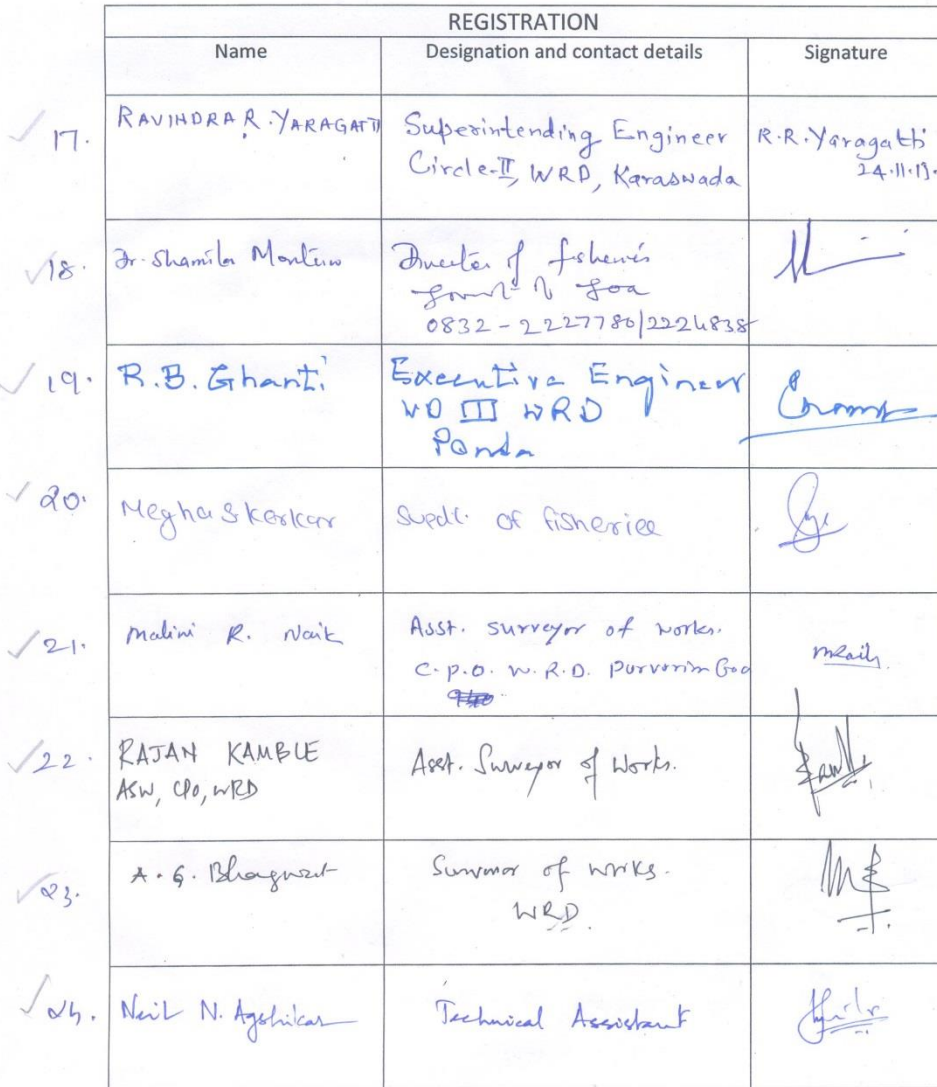 REGISTRATION
Name Designation and contact details Signature
17. RAVINDRA R. YARAGATTI Superintending Engineer R.R.Yaragatti
Circle-II, WRD, Karaswada 24.11.13.
18. Dr. Shamila Monteiro Director of fisheries
Govt of Goa
0832-2227780/2224838
19. R.B. Ghanti Executive Engineer
WD III WRD
Ponda
20. Megha S Kerkar Supdt. of fisheries
21. Malini R. Naik Asst. surveyor of works. MNaik
C.P.O. W.R.D. Porvorim Goa
22. RAJAN KAMBLE Asst. Surveyor of Works.
ASW, CPO, WRD
23. A. G. Bhagwat Surveyor of works.
WRD
24. Neil N. Agshikar Technical Assistant